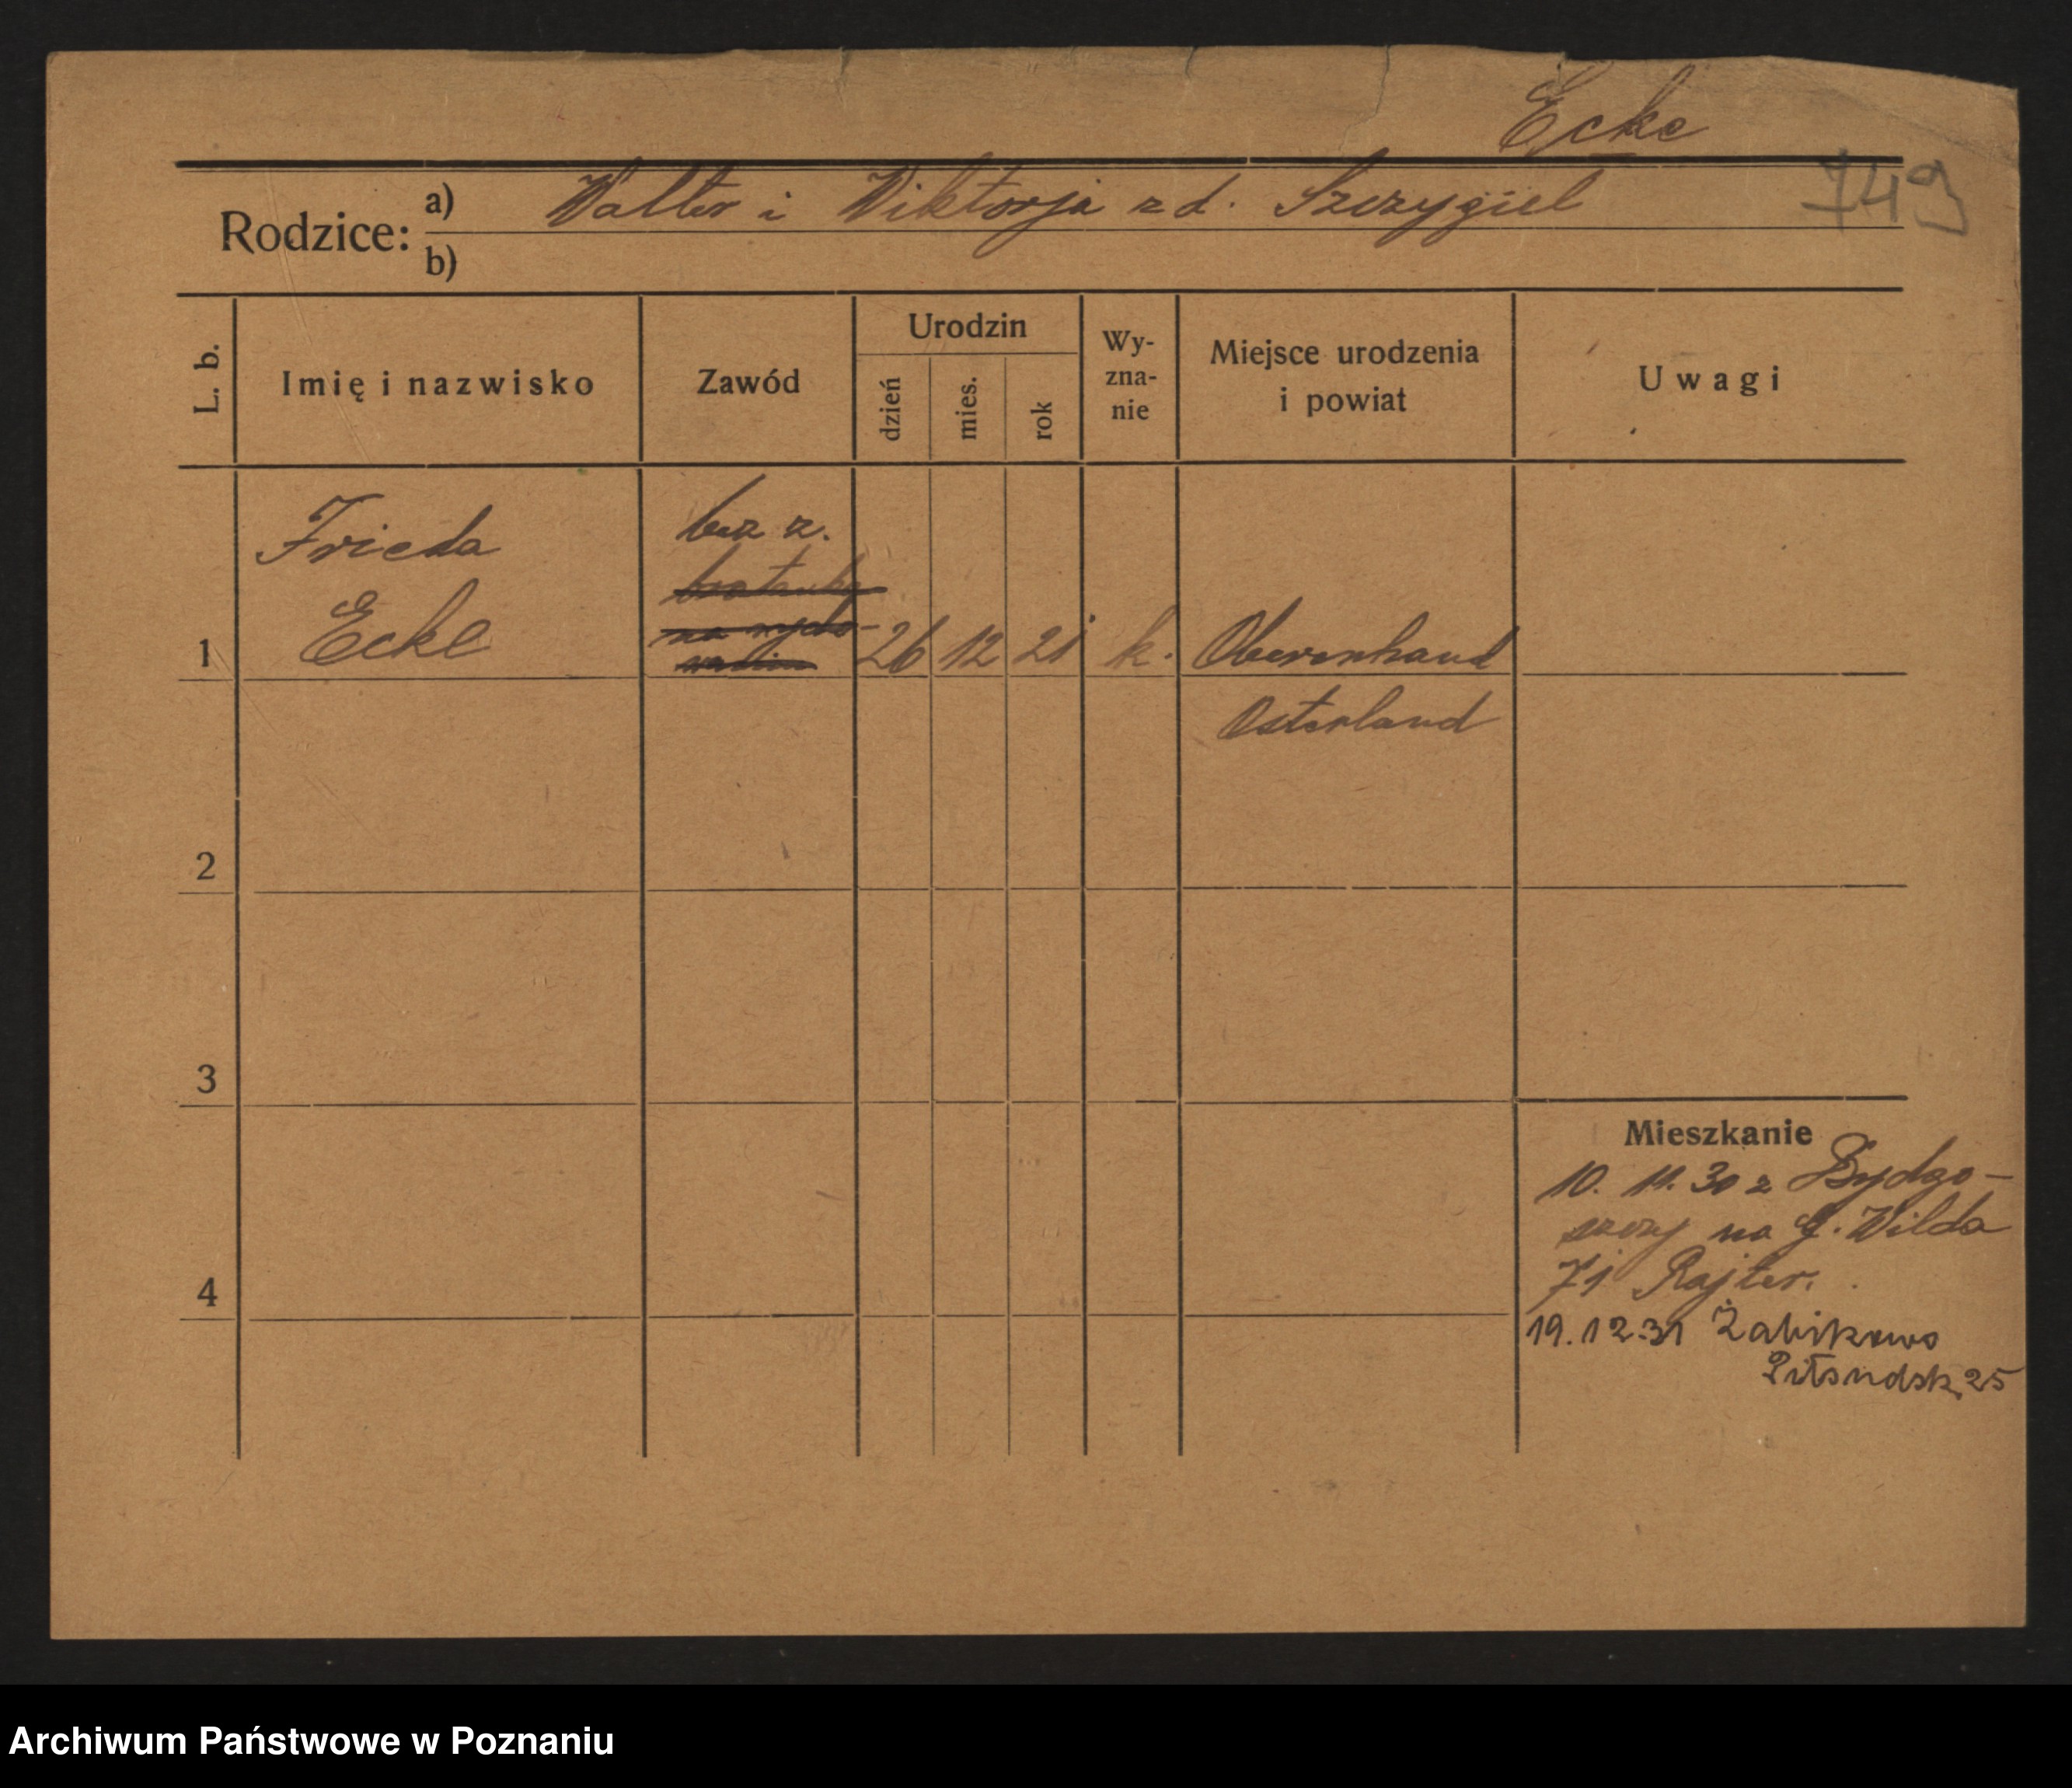 Ecke
749
Rodzice: a) Walter i Wiktorja z d. Szczygieł
b)
L. b.
Imię i nazwisko
Zawód
Urodzin
dzień
mies.
rok
Wy-
zna-
nie
Miejsce urodzenia
i powiat
Uwagi
Frieda
Ecke
bez z.
bratanka
na wycho-
1
26 12 21 k.
Osterland
2
3
4
Mieszkanie
10. 11. 30 z Bydgo-
szczy na G. Wilda
71 Rajter.
19.12.31 Żabikowo
Piłsudsk. 25
Archiwum Państwowe w Poznaniu